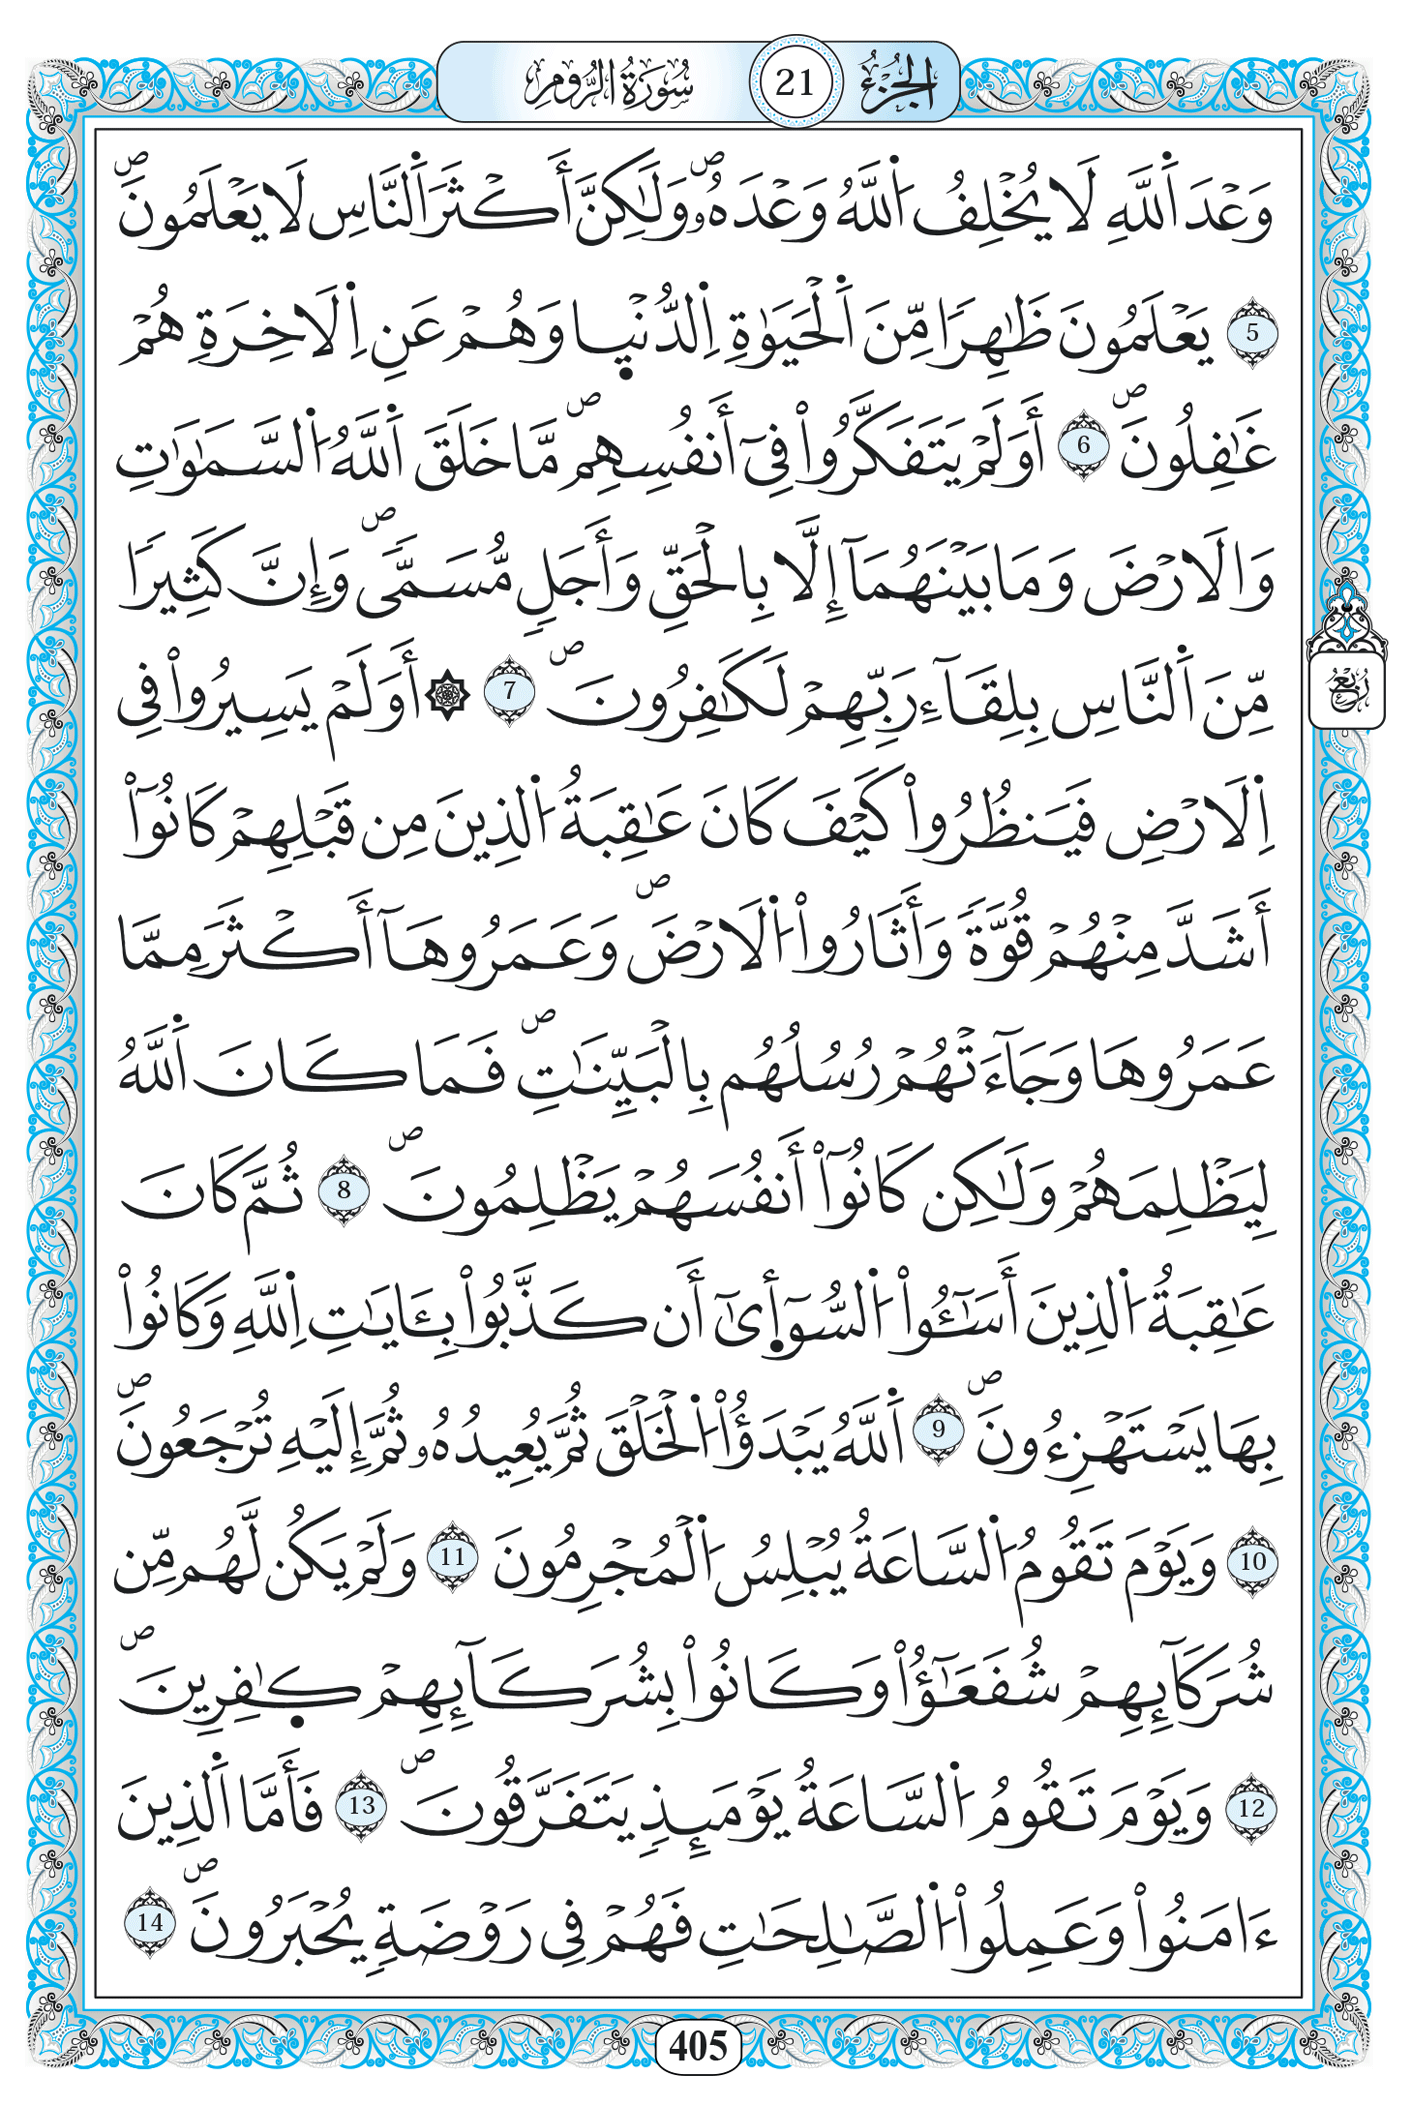 سُورَةُ الرُّومِ 21 الجُزْءُ
وَعْدَ اَ۬للَّهِ لَا يُخْلِفُ اُ۬للَّهُ وَعْدَهُۥۖ وَلَٰكِنَّ أَكْثَرَ اَ۬لنَّاسِ لَا يَعْلَمُونَۖ
5 يَعْلَمُونَ ظَٰهِراٗ مِّنَ اَ۬لْحَيَوٰةِ اِ۬لدُّنْي۪ا وَهُمْ عَنِ اِ۬لَاخِرَةِ هُمْ
غَٰفِلُونَۖ 6 أَوَلَمْ يَتَفَكَّرُواْ فِےٓ أَنفُسِهِمۖ مَّا خَلَقَ اَ۬للَّهُ اُ۬لسَّمَٰوَٰتِ
وَالَارْضَ وَمَا بَيْنَهُمَآ إِلَّا بِالْحَقِّ وَأَجَلٖ مُّسَمّيٗۖ وَإِنَّ كَثِيراٗ
مِّنَ اَ۬لنَّاسِ بِلِقَآءِ رَبِّهِمْ لَكَٰفِرُونَۖ 7 ۞ أَوَلَمْ يَسِيرُواْ فِے
اِ۬لَارْضِ فَيَنظُرُواْ كَيْفَ كَانَ عَٰقِبَةُ اُ۬لذِينَ مِن قَبْلِهِمْ كَانُوٓاْ
أَشَدَّ مِنْهُمْ قُوَّةٗ وَأَثَارُواْ اُ۬لَارْضَۖ وَعَمَرُوهَآ أَكْثَرَ مِمَّا
عَمَرُوهَا وَجَآءَتْهُمْ رُسُلُهُم بِالْبَيِّنَٰتِۖ فَمَا كَانَ اَ۬للَّهُ
لِيَظْلِمَهُمْ وَلَٰكِن كَانُوٓاْ أَنفُسَهُمْ يَظْلِمُونَۖ 8 ثُمَّ كَانَ
عَٰقِبَةُ اُ۬لذِينَ أَسَٰٓـُٔواْ اُ۬لسُّوٓأ۪ىٰٓ أَن كَذَّبُواْ بِـَٔايَٰتِ اِ۬للَّهِ وَكَانُواْ
بِهَا يَسْتَهْزِءُونَۖ 9 اَ۬للَّهُ يَبْدَؤُاْ اُ۬لْخَلْقَ ثُمَّ يُعِيدُهُۥ ثُمَّ إِلَيْهِ تُرْجَعُونَۖ
10 وَيَوْمَ تَقُومُ اُ۬لسَّاعَةُ يُبْلِسُ اُ۬لْمُجْرِمُونَ 11 وَلَمْ يَكُن لَّهُم مِّن
شُرَكَآئِهِمْ شُفَعَٰٓؤُاْ وَكَانُواْ بِشُرَكَآئِهِمْ كٰ۪فِرِينَۖ
12 وَيَوْمَ تَقُومُ اُ۬لسَّاعَةُ يَوْمَئِذٖ يَتَفَرَّقُونَۖ 13 فَأَمَّا اَ۬لذِينَ
ءَامَنُواْ وَعَمِلُواْ اُ۬لصَّٰلِحَٰتِ فَهُمْ فِے رَوْضَةٖ يُحْبَرُونَۖ 14
رُبُعْ
405